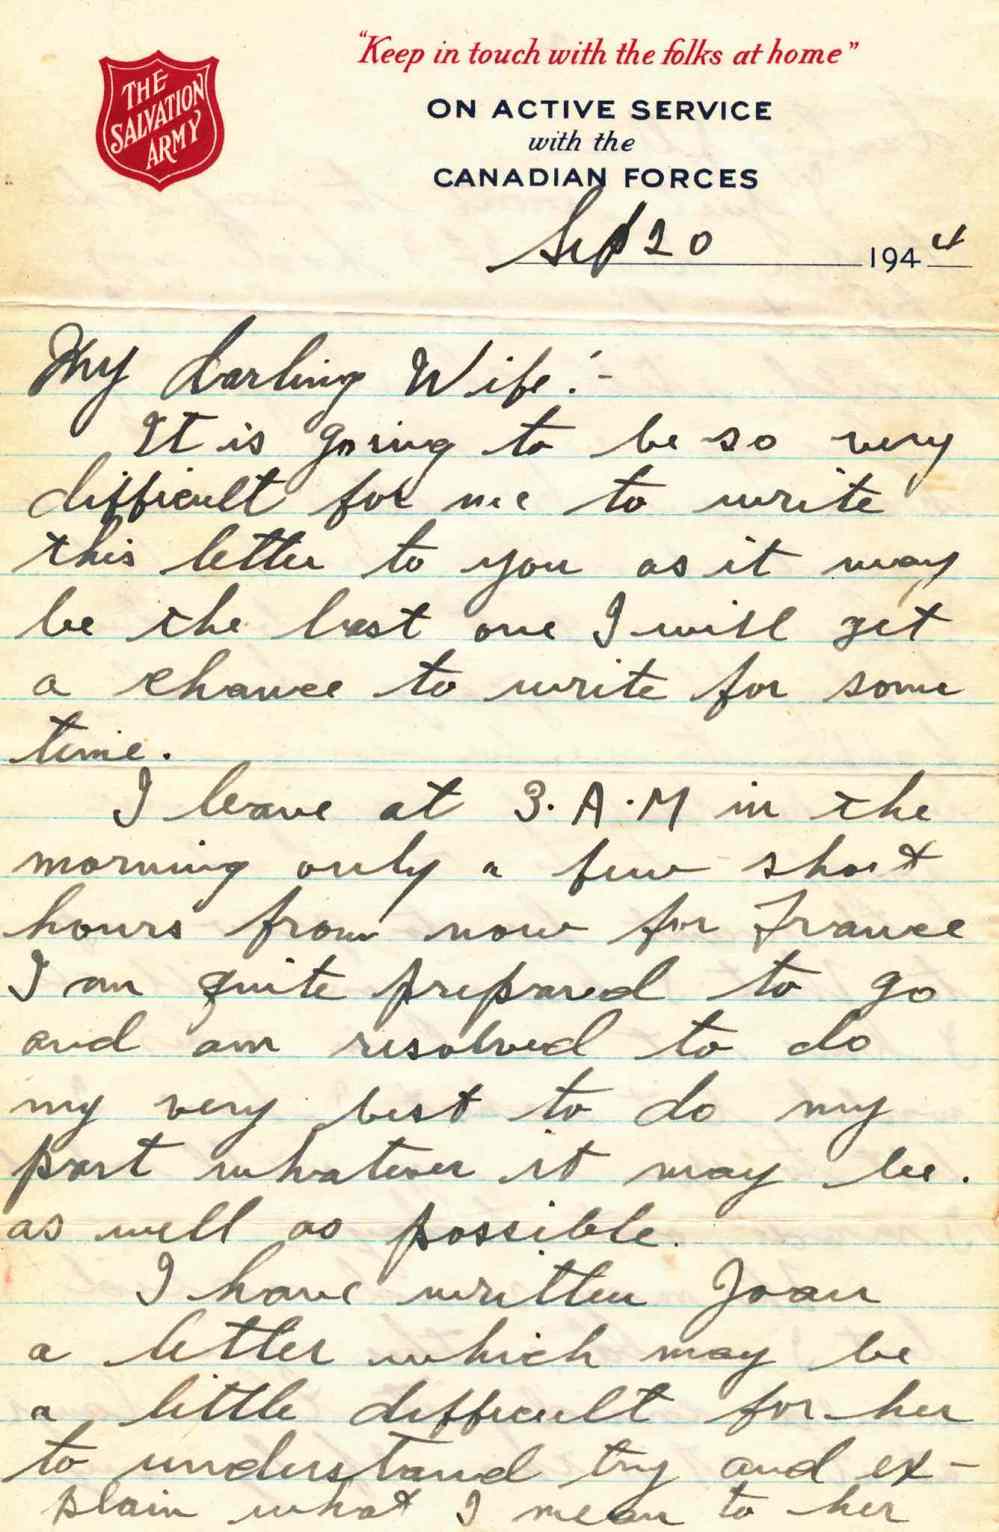 THE
SALVATION
ARMY
"Keep in touch with the folks at home"
ON ACTIVE SERVICE
with the
CANADIAN FORCES
Sept 20 1944
My darling Wife:-
It is going to be so very
difficult for me to write
this letter to you as it may
be the last one I will get
a chance to write for some
time.
I leave at 3.A.M in the
morning only a few short
hours from now for France
I am quite prepared to go
and am resolved to do
my very best to do my
part whatever it may be.
as well as possible.
I have written Joan
a letter which may be
a little difficult for her
to understand try and ex-
plain what I mean to her